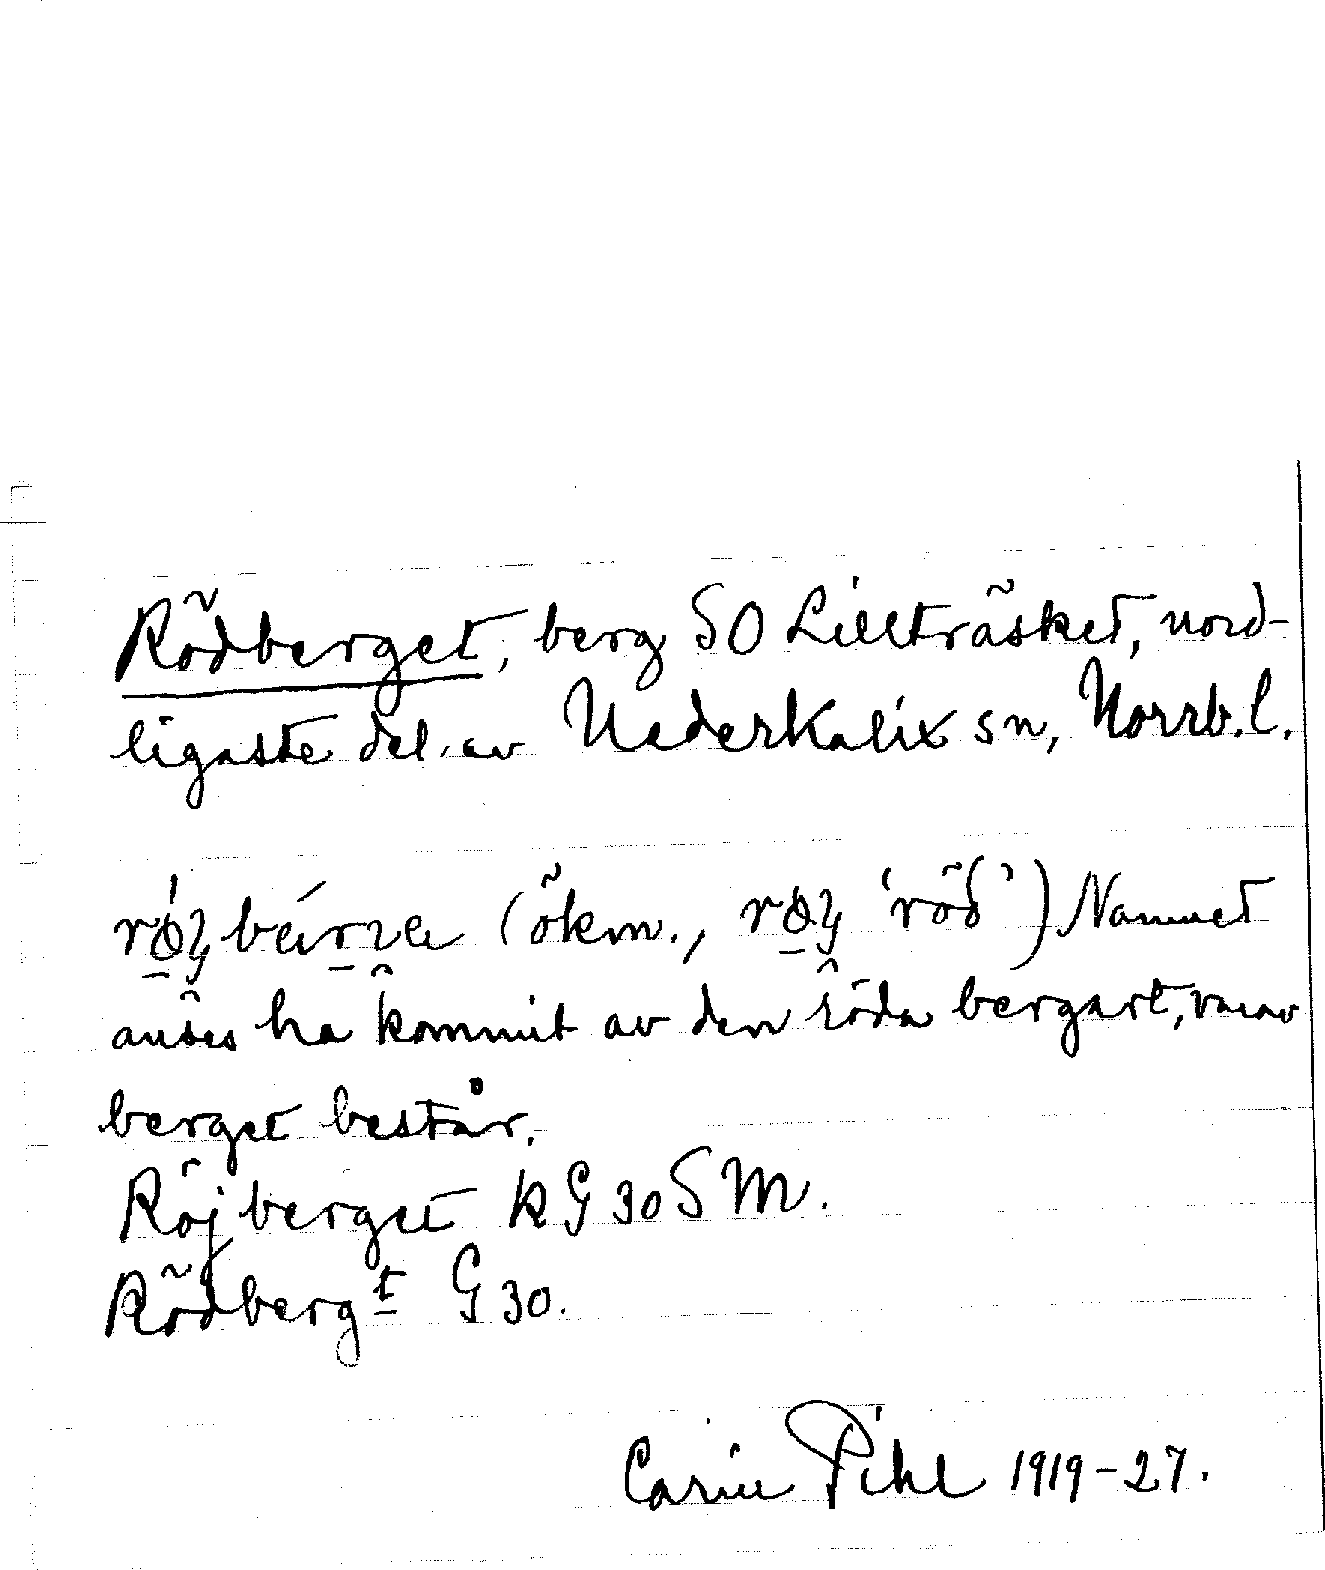 Rödberget, berg SO Lillträsket, nord-
ligaste del av Nederkalix sn, Norrb.l.
(ökn., 'röd') Namnet
anses ha kommit av den röda bergart, varav
berget består.
Röjberget kG30SM.
Rödbergt G30.
Carin Pihl 1919-27.